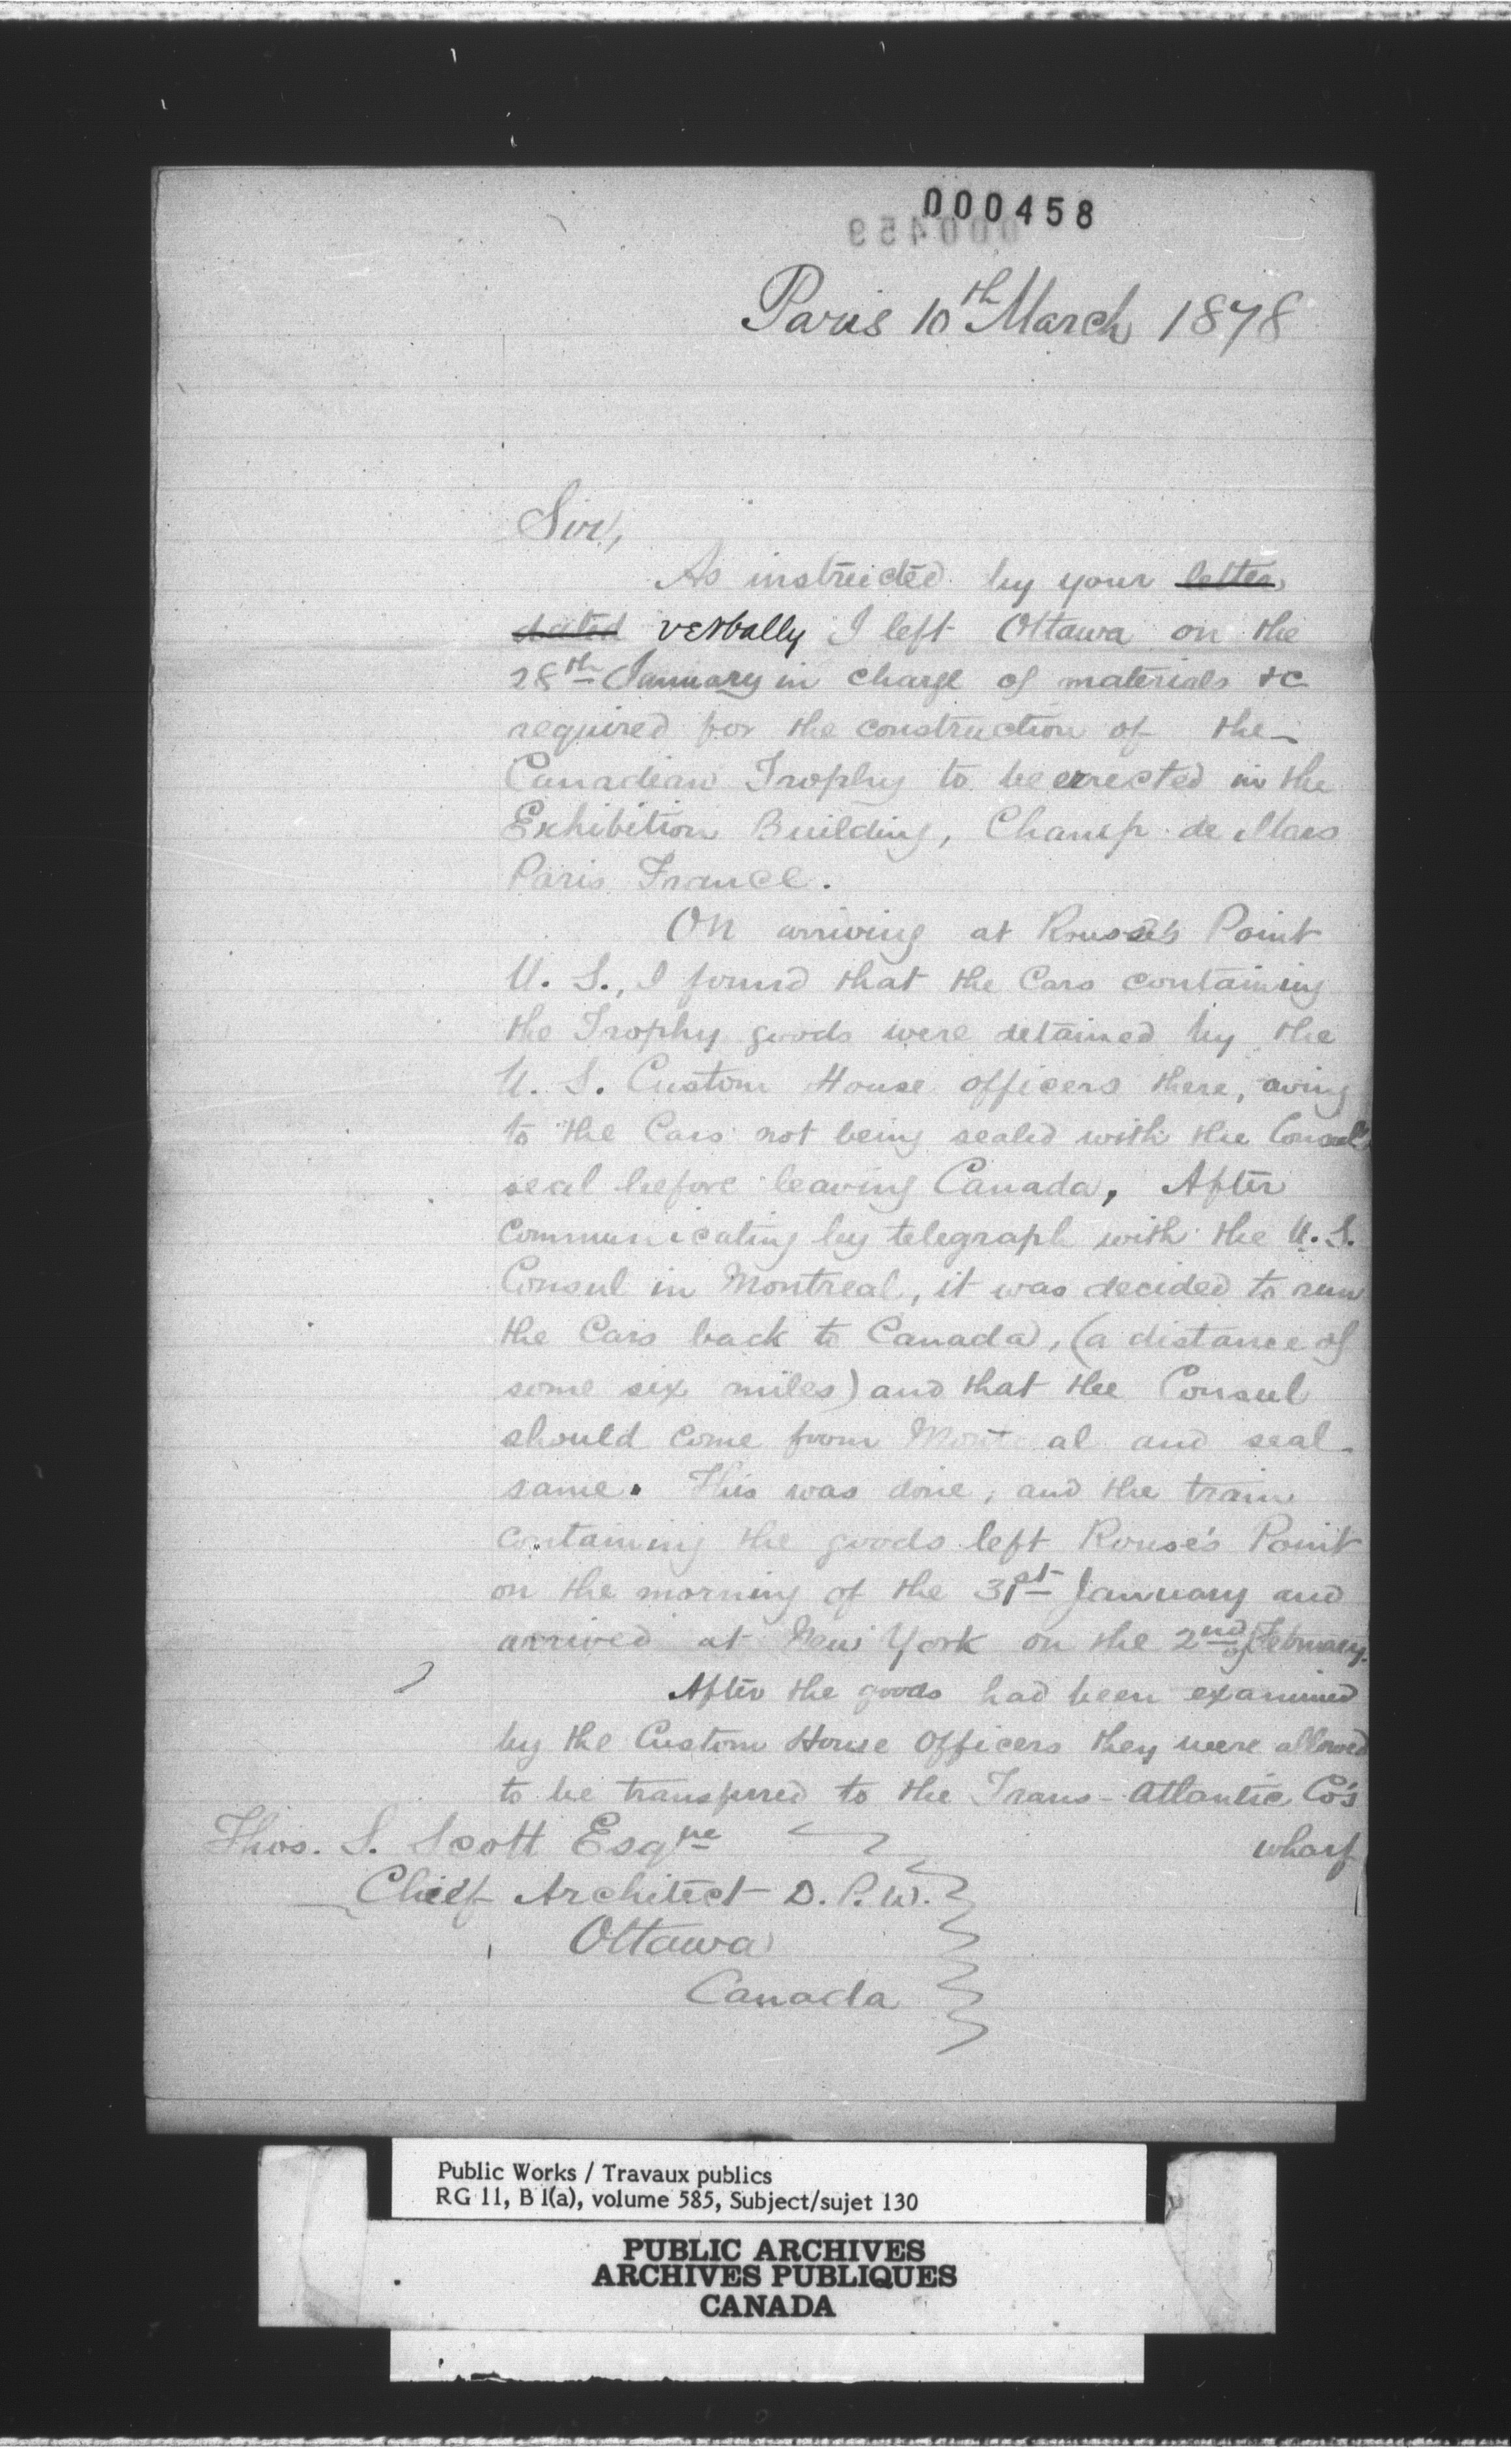 000458
000459
Paris 10th March 1878
Sir,
As instructed by your letter
dated verbally I left Ottawa on the
28th January in charge of materials &c
required for the construction of the
Canadian Trophy to be errected in the
Exhibition Building, Champ de Mars
Paris France.
On arriving at Rouse's Point
U. S., I found that the Cars containing
the Trophy goods were detained by the
U. S. Custom House officers there, owing
to the Cars not being sealed with the Consul's
seal before leaving Canada, After
communicating by telegraph with the U. S.
Consul in Montreal, it was decided to run
the Cars back to Canada, (a distance of
some six miles) and that the Consul
should come from Montreal and seal
same. This was done, and the train
containing the goods left Rouse's Point
on the morning of the 31st January and
arrived at New York on the 2nd of February.
After the goods had been examined
by the Custom House Officers they were allowed
to be transferred to the Trans-Atlantic Co's
wharf
Thos. S. Scott Esqre
Chief Architect D. P. W.
Ottawa
Canada
Public Works / Travaux publics
RG 11, B 1(a), volume 585, Subject/sujet 130
PUBLIC ARCHIVES
ARCHIVES PUBLIQUES
CANADA